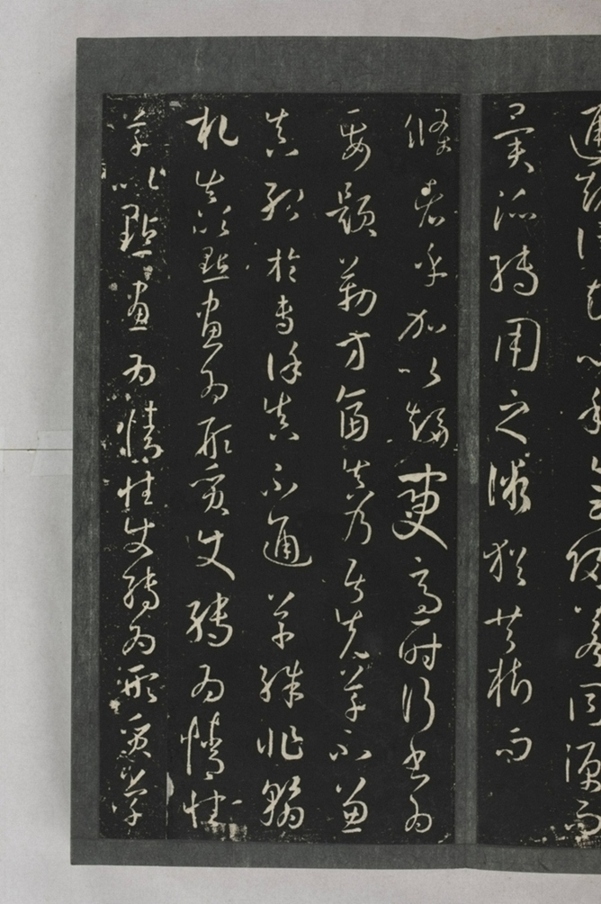 通規詎知心手會歸若同源而
異派轉用之術猶共樹而
條者乎加以趨變適時行書為
要題勒方畐真乃居先草不兼
真殆於專謹真不通草殊非翰
札真以點畫為形質使轉為情性
草以點畫為情性使轉為形質草